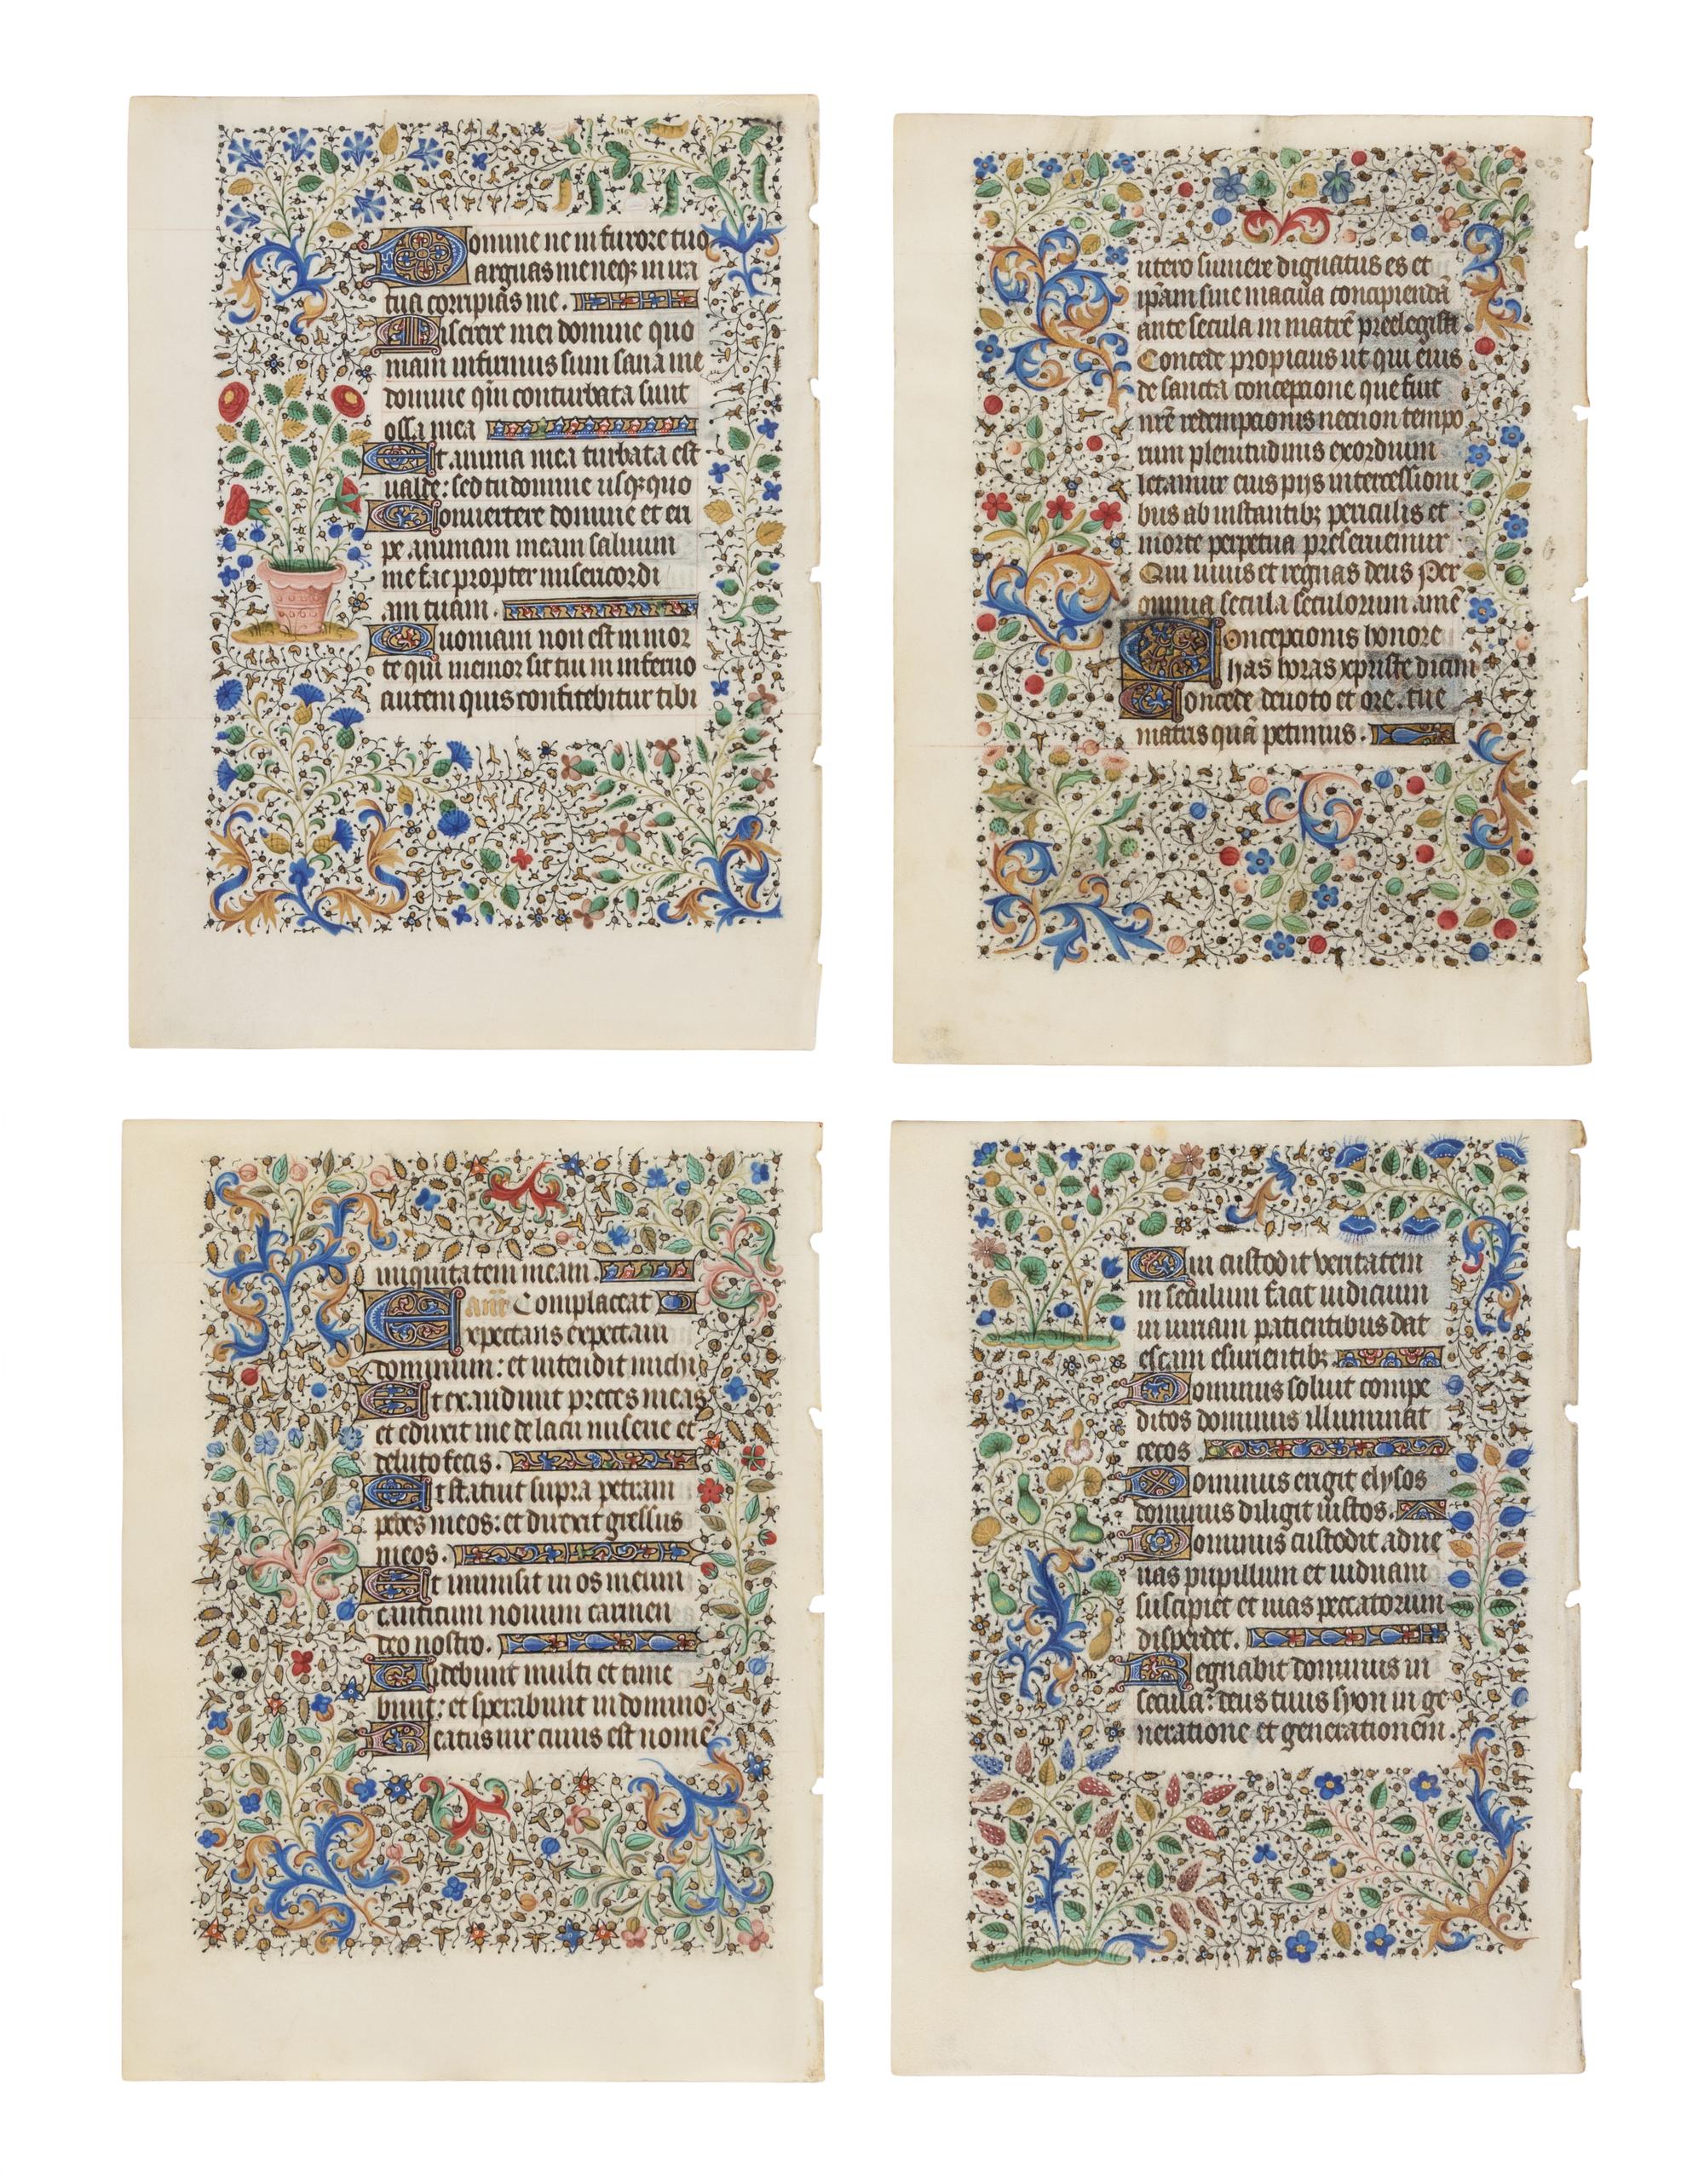 Domine ne in furore tuo
arguas me neq; in ira
tua corripias me.
Miserere mei domine quo
niam infirmus sum sana me
domine qm̄ conturbata sunt
ossa mea
Et anima mea turbata est
ualde: sed tu domine usq;quo
Conuertere domine et eri
pe animam meam saluum
me fac propter misericordi
am tuam.
Quoniam non est in mor
te qui memor sit tui in inferno
autem quis confitebitur tibi
utero sumere dignatus es et
ip̄am sine macula concipiendā
ante secula in matrē preelegisti
Concede propicius ut qui eius
de sancta conceptione que fuit
nr̄e redempcionis necnon tempo
rum plenitudinis exordium
letamur eius pijs intercessioni
bus ab instantib; periculis et
morte perpetua preseruemur
Qui uiuis et regnas deus Per
omnia secula seculorum amē
Conceptionis honore
has horas xp̄iste dicim̄
Concede deuoto et ore. tue
matris quā petimus.
iniquitatem meam.
anē Complaceat
Expectans expectaui
dominum: et intendit michi
Et exaudiuit preces meas
et eduxit me de lacu miserie et
de luto fecis.
Et statuit supra petram
pedes meos: et direxit gressus
meos.
Et immisit in os meum
canticum nouum carmen
deo nostro.
Uidebunt multi et time
bunt: et sperabunt in domino
Beatus uir cuius est nomē
Qui custodit veritatem
in seculum facit iudicium
in iuriam patientibus dat
escam esurientib;
Dominus soluit compe
ditos dominus illuminat
cecos
Dominus erigit elysos
dominus diligit iustos.
Dominus custodit adue
nas pupillum et uiduam
suscipiet et uias peccatorum
disperdet.
Regnabit dominus in
secula: deus tuus syon in ge
neratione et generationem.